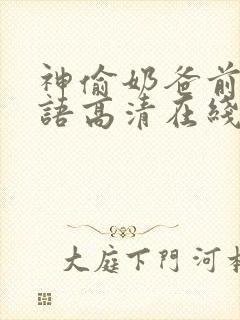 神偷奶爸前
語高清在綫
大庭下門河